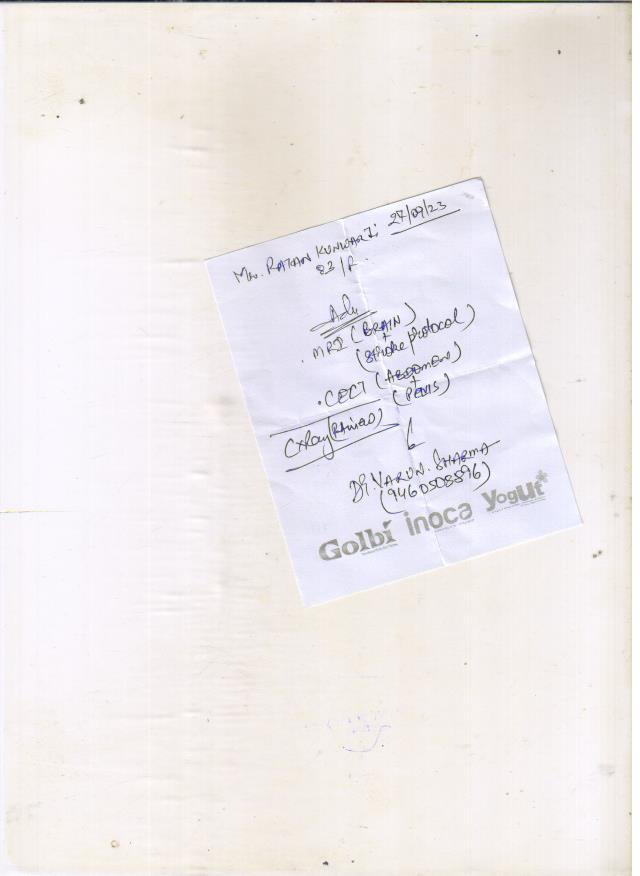 Mrs. RATAN KUNWAR Ji 27/09/23
83/F
Adv
. MRI (BRAIN)
+
(Stroke protocol)
. CECT (ABDOMEN)
+
(PELVIS)
CXRay
Dr. VARUN. SHARMA
(9460508896)
Golbi inoca YogUt